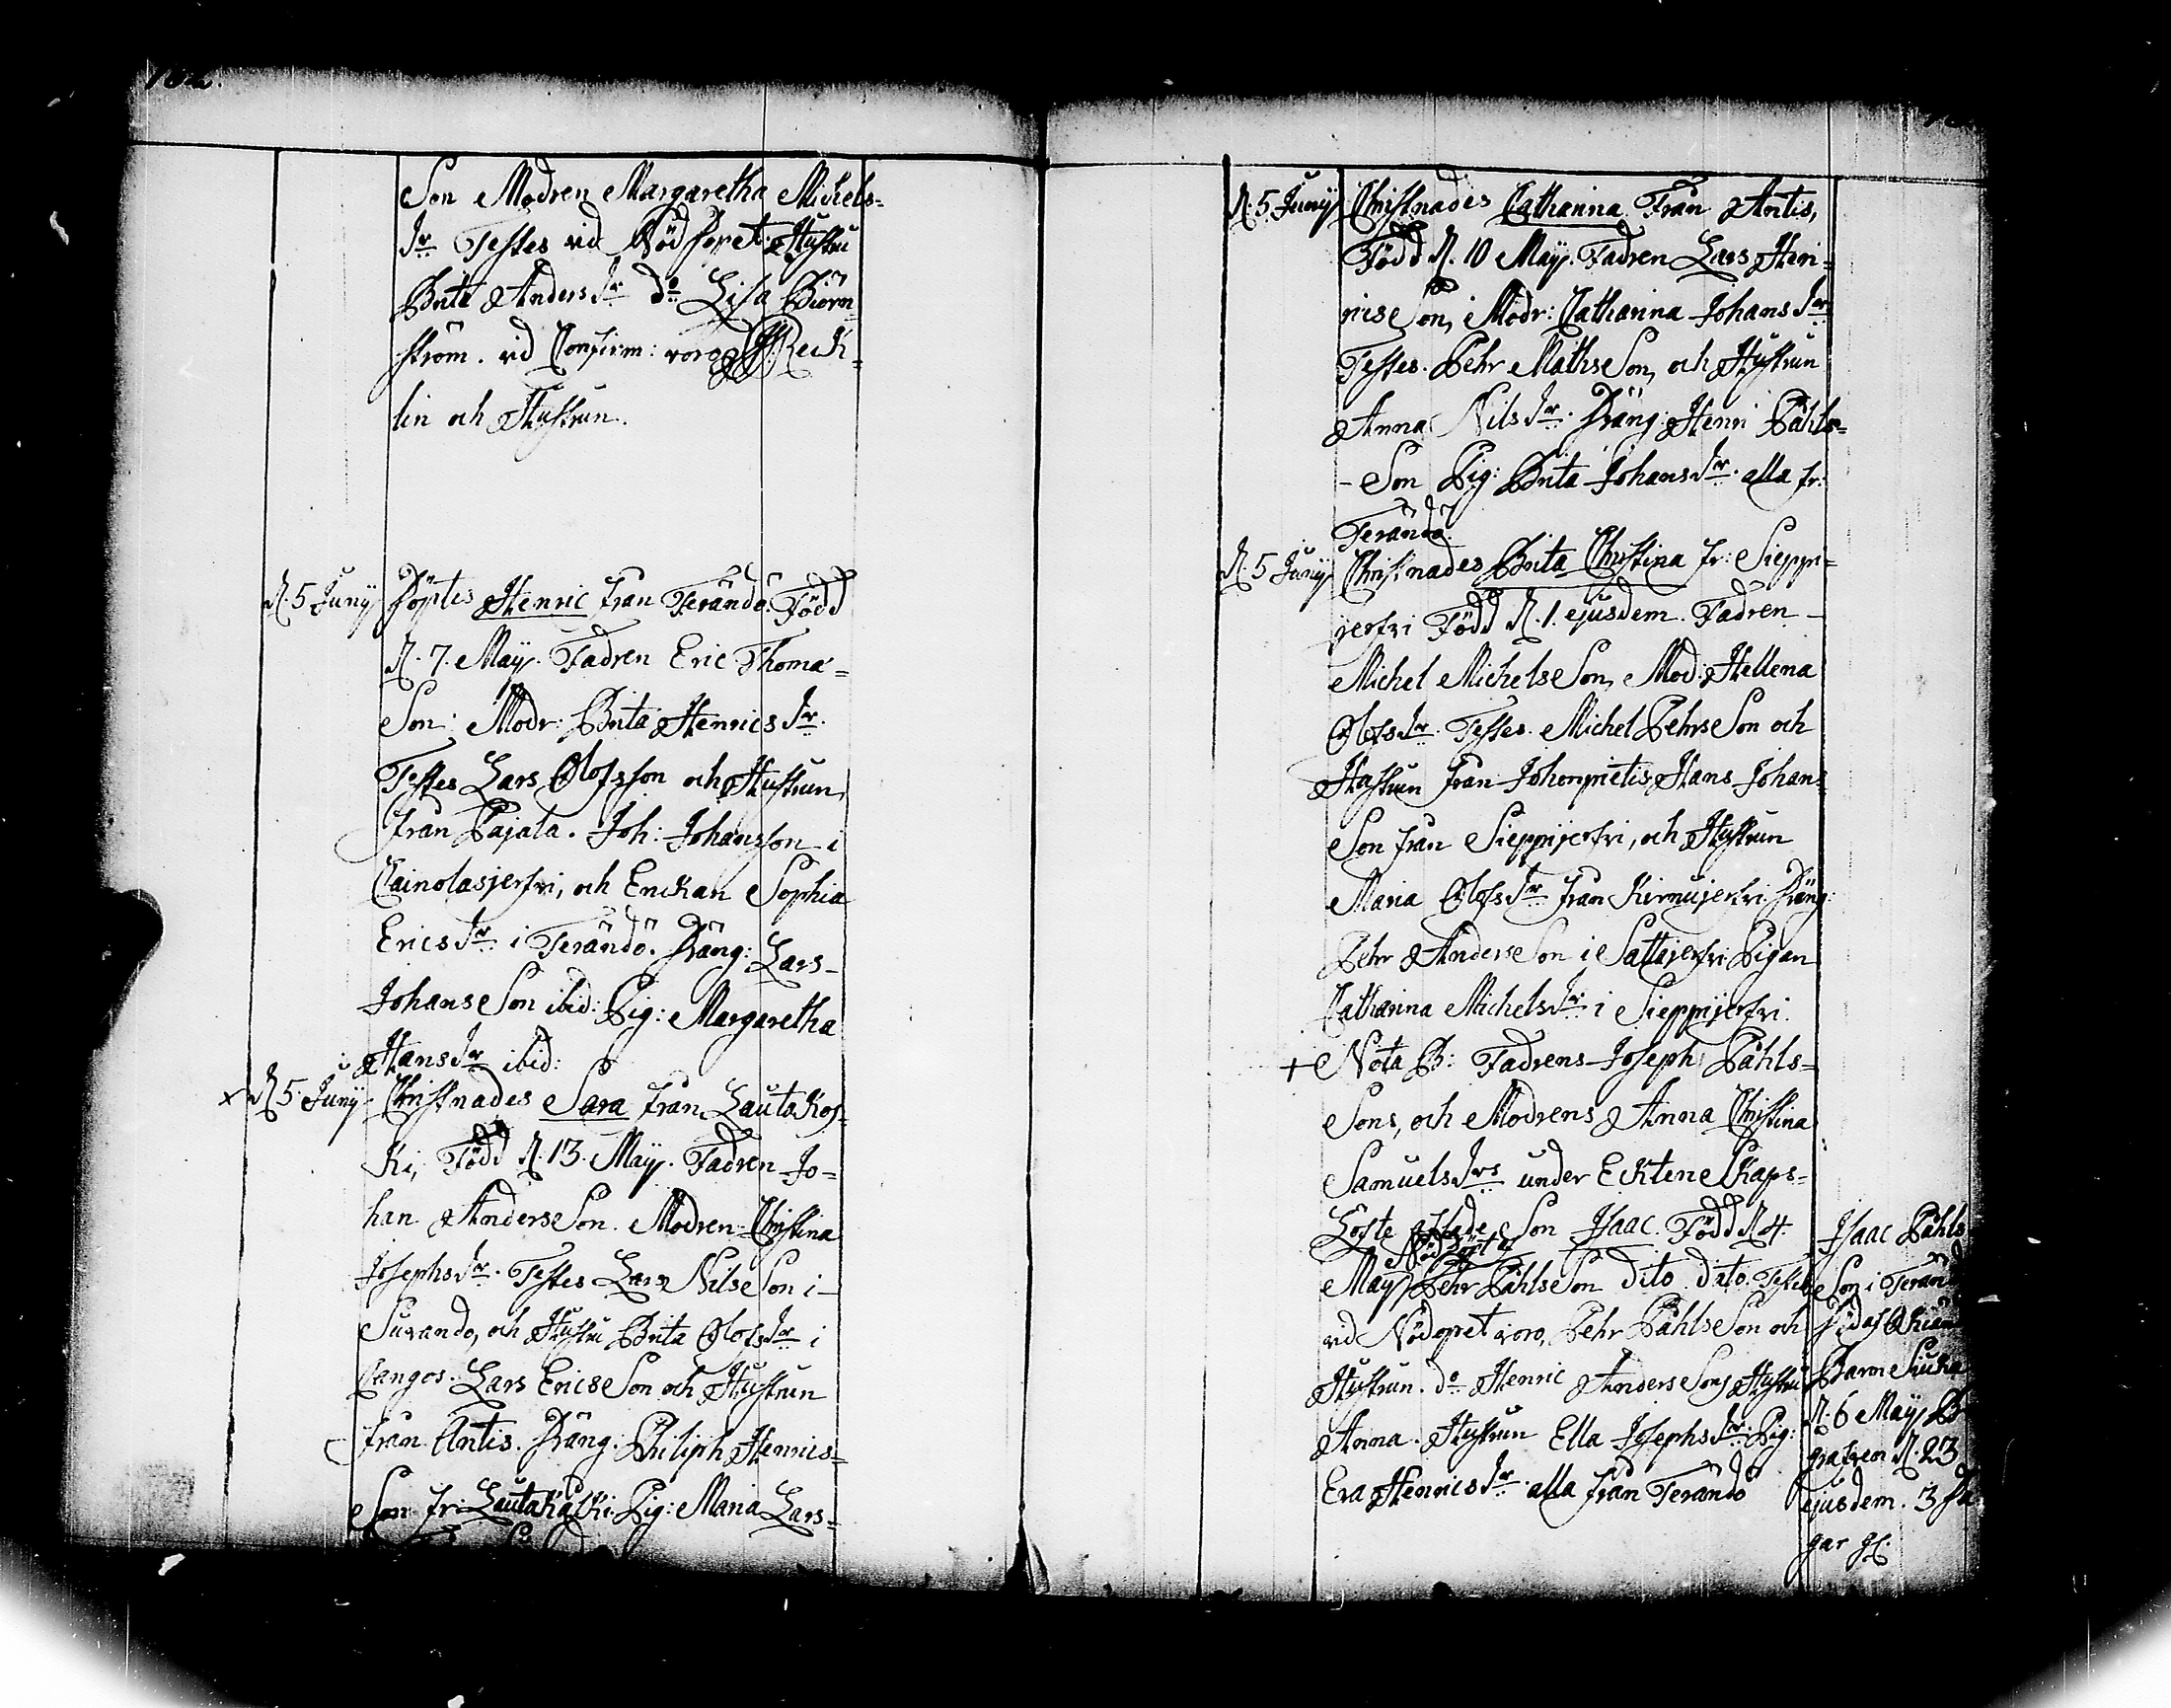 Son Modren Margaretha Michels=
dr Testes vid Nöddopet Hustru
Brita Anders dr do Lisa Biörn
ström. vid Confirm: voro H Reck=
lin och Hustrun.
D. 5 Junij Döptes Henric från Terändö. Född
D. 7. Maij. Fadren Eric Thoma=
Son: Modr: Brita Henrics dr.
Testes Lars Olofsson och Hustrun
från Pajala. Joh: Johansson i
Cainolasjerfvi, och Enckan Sophia
Erics dr i Terändö. Dräng: Lars
Johans Son ibid: Pig: Margaretha
Hans dr ibid:
x D 5. Junij Christnades Sara från Lautakos=
ki, Född D. 13. Maij. Fadren Jo=
han Anders Son. Modren Christina
Josephs dr. Testes Lars Nils Son i
Surando, och Hustru Brita Olofs dr i
Cangos. Lars Erics Son och Hustrun
från Antis. Dräng: Philiph Henrics=
Son fr: Lautakåski. Pig: Maria Lars=
D. 5 Junij Christnades Catharina Från Antis,
Född D. 10 Maij. Fadren Lars Hen=
rics Son, Modr: Catharina Johans dr
Testes. Pehr Maths Son, och Hustrun
Anna Nils dr. Dräng: Henri Påhls=
- Son Pig: Brita Johans dr. alla fr:
Terändö.
D. 5 Junij Christnades Brita Christina fr: Sieppi=
jerfvi Född D. 1. ejusdem. Fadren
Michel Michels Son, Mod: Hellena
Olofs dr. Testes. Michel Pehrs Son och
Hustrun från Johonpietis, Hans Johans
Son från Sieppijerfvi, och Hustrun
Maria Olofs dr från Kirnujerfvi. Dräng:
Pehr Anders Son i Sattajerfvi. Pigan
Catharina Michels dr i Sieppijerfvi.
+ Nota B: Fadrens Joseph Påhls=
Sons, och Modrens Anna Christina
Samuels drs under Ecktenskaps=
Löfte Aflade Son Isaac. Född D 4.
Nöddöpt af
Maij Pehr Påhls Son dito dito. Testes
vid Nödopet voro, Pehr Påhls Son och
Hustrun. do Henric Anders Sons Hustru
Anna. Hustrun Ella Josephs dr. Pig:
Eva Henrics dr. alla från Terändö
Isaac Påhls
Son i Teränd
död af
Barn Siuka
D. 6 Maij B
grafven D. 23
ejusdem. 3
gar gl.